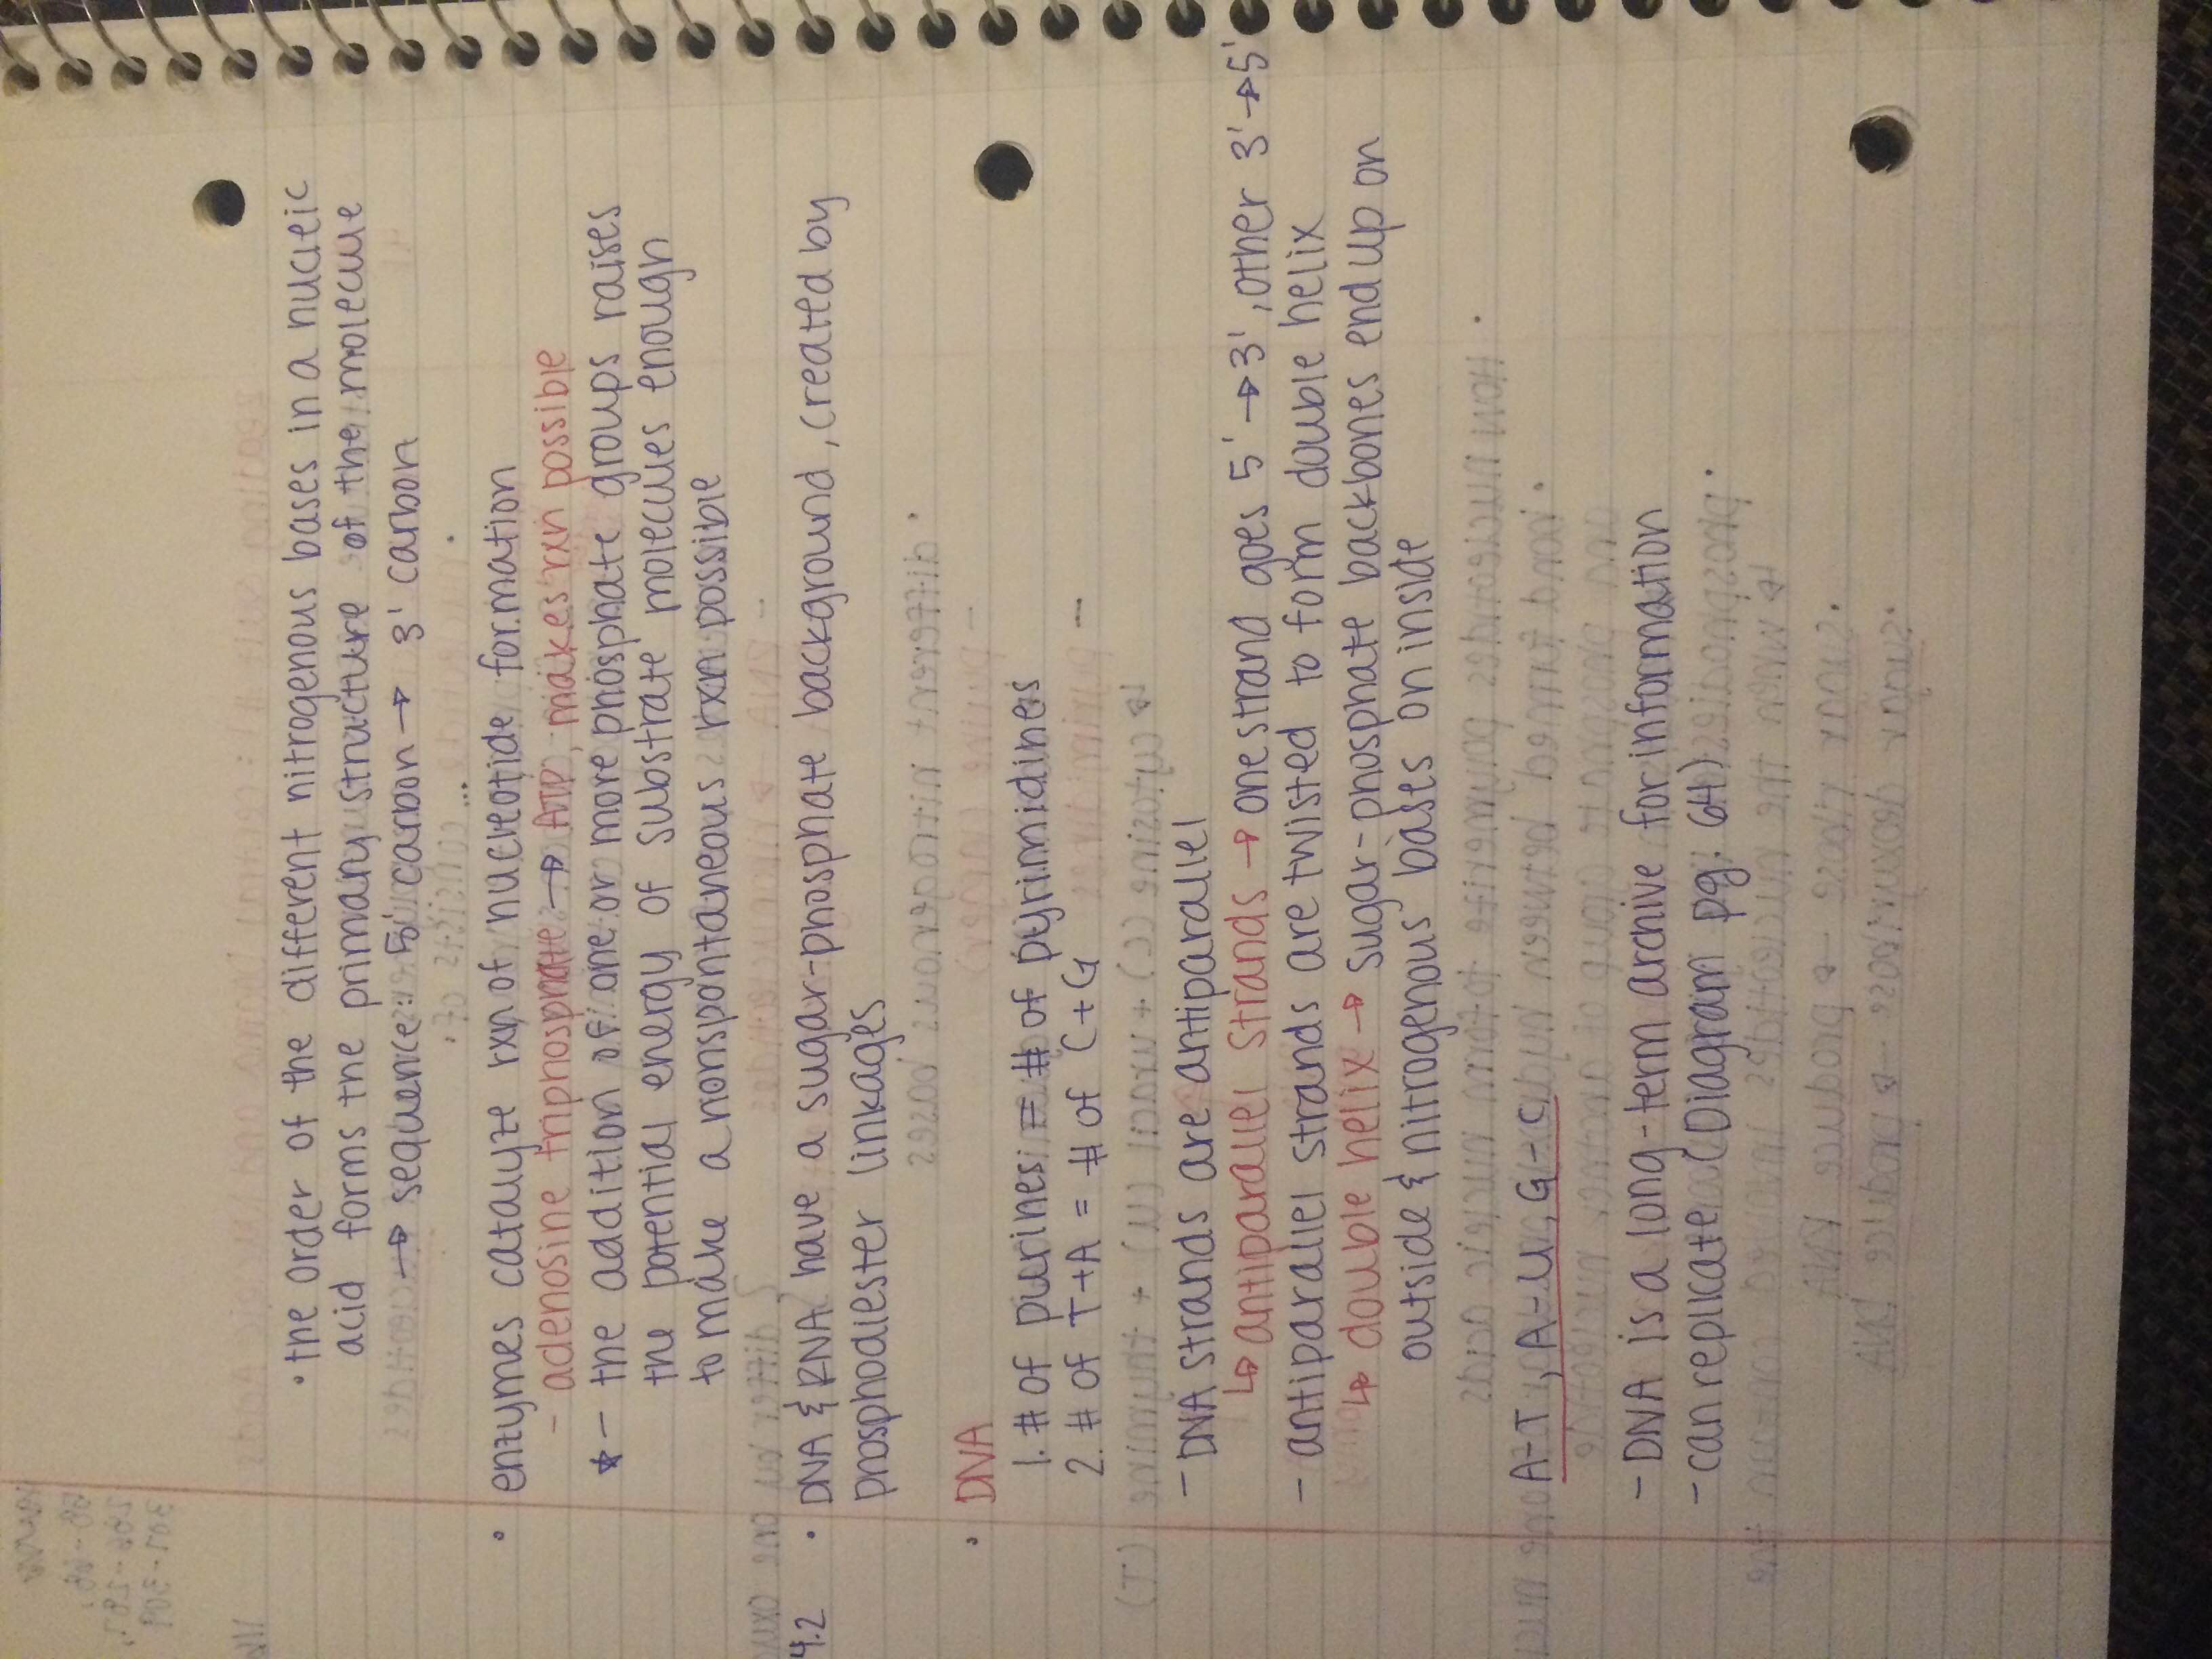 • the order of the different nitrogenous bases in a nucleic
acid forms the primary structure of the molecule
→ sequence: 5' carbon → 3' carbon
• enzymes catalyze rxn of nucleotide formation
- adenosine triphosphate → ATP, makes rxn possible
★ - the addition of one or more phosphate groups raises
the potential energy of substrate molecules enough
to make a nonspontaneous rxn possible
4.2 • DNA & RNA have a sugar-phosphate background, created by
phosphodiester linkages
• DNA
1. # of purines = # of pyrimidines
2. # of T+A = # of C+G
- DNA strands are antiparallel
↳ antiparallel strands → one strand goes 5' → 3', other 3' → 5'
- antiparallel strands are twisted to form double helix
↳ double helix → sugar-phosphate backbones end up on
outside & nitrogenous bases on inside
A-T, A-U, G-C
- DNA is a long-term archive for information
- can replicate (Diagram pg. 64)